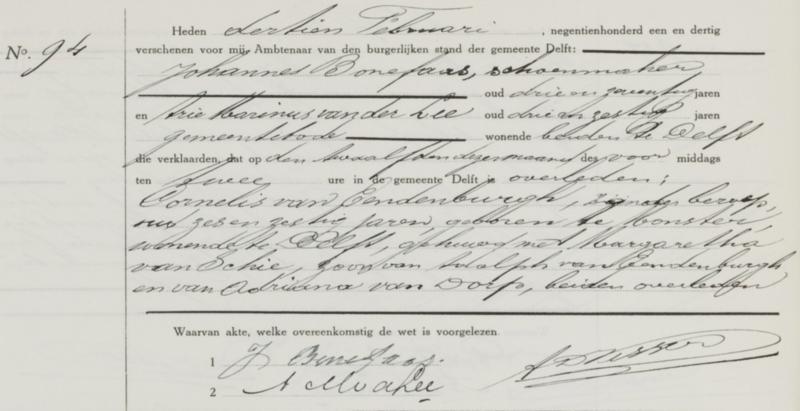 Heden dertien Februari, negentienhonderd een en dertig
No. 94
verschenen voor mij, Ambtenaar van den burgerlijken stand der gemeente Delft:
Johannes Bonefaas, schoenmaker
oud drie en zeventig jaren
en Arie Marinus van der Lee oud drie en zestig jaren
gemeentebode wonende beiden te Delft
die verklaarden, dat op den twaalfden dezer maand des voor middags
ten twee ure in de gemeente Delft is overleden;
Cornelis van Eendenburgh, zonder beroep,
oud zes en zestig jaren, geboren te Monster,
wonende te Delft, gehuwd met Margaretha
van Schie, zoon van van Eendenburgh
en van Adriana van Dorp, beiden overleden
Waarvan akte, welke overeenkomstig de wet is voorgelezen.
1 J Bonefaas.
2 A M v d Lee